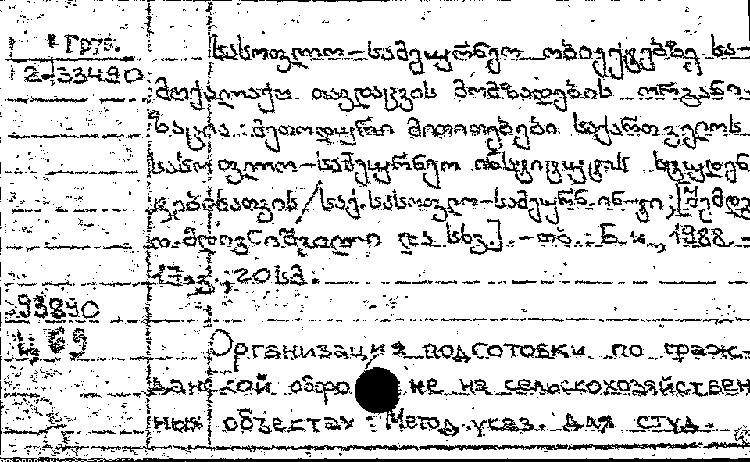 Груз.
2-33490
სასოფლო-სამეურნეო ობიექტებზე სა-
მოქალაქო თავდაცვის მომზადების ორგანი-
ზაცია : მეთოდური მითითებები საქართველოს
სასოფლო-სამეურნეო ინსტიტუტის სტუდენ
ტებისათვის / საქ. სასოფლო-სამეურნ. ინ-ტი; [შემდგ.
და სხვ.]. - თბ. : 1988 -
17 გ. ; 20 სმ.
93890
Организация подготовки по граж-
данской оборо не на сельскохозяйствен
ных объектах : Метод. указ. для студ.